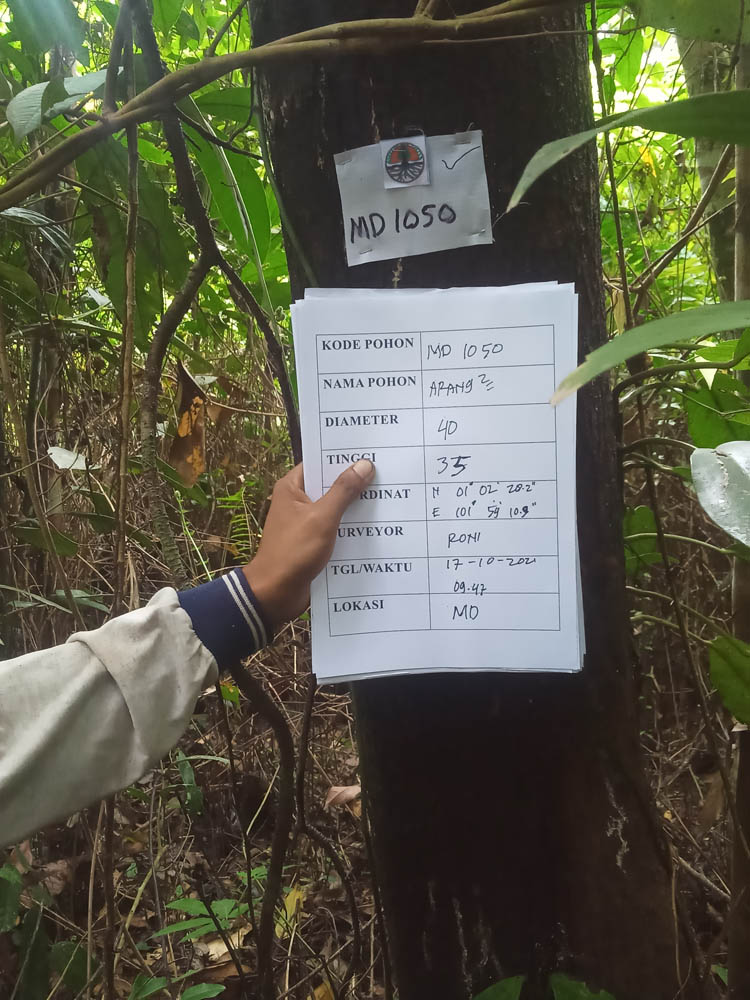 MD 1050
KODE POHON MD 1050
NAMA POHON ARANG2
DIAMETER 40
TINGGI 35
RDINAT N 01° 02' 20.2"
E 101° 59' 10.9"
URVEYOR RONI
TGL/WAKTU 17-10-2021
09.47
LOKASI MD